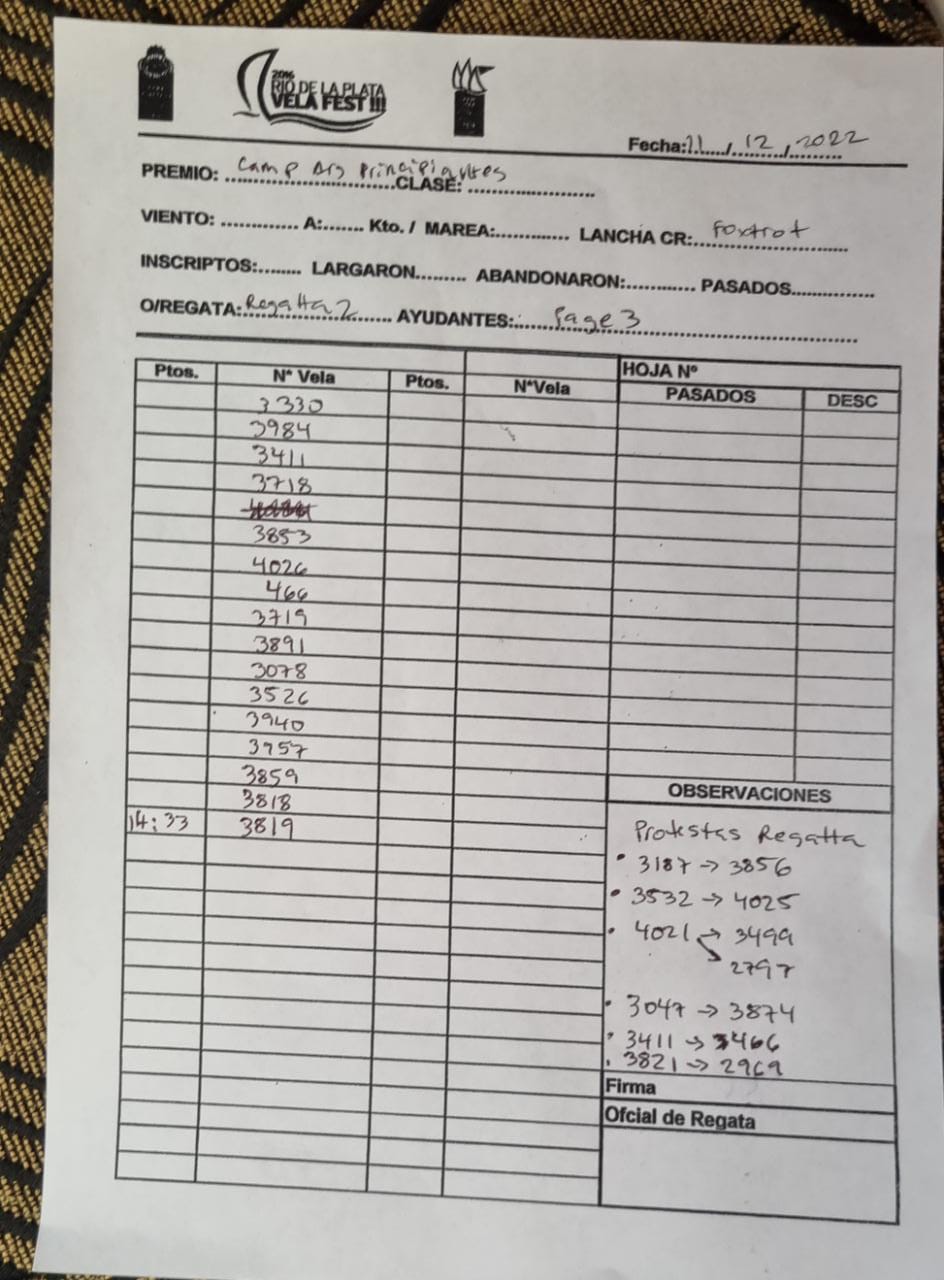 2016
RIO DE LA PLATA
VELA FEST !!!
Fecha: 11 / 12 , 2022
PREMIO: Camp Arg Principiantes CLASE:
VIENTO: ............. A:....... Kto. / MAREA:............. LANCHA CR: Foxtrot
INSCRIPTOS:........ LARGARON......... ABANDONARON:............ PASADOS...............
O/REGATA: Regatta 2 AYUDANTES: Page 3
HOJA Nº
Ptos. Nº Vela Ptos. NºVela PASADOS DESC
3330
3984
3411
3718
3853
4026
466
3719
3891
3078
3526
3940
3957
3859
3818
14:33 3819
OBSERVACIONES
Protestas Regatta
• 3187 → 3856
• 3532 → 4025
• 4021 → 3499
↘ 2797
• 3047 → 3874
• 3411 → 3466
• 3821 → 2969
Firma
Ofcial de Regata